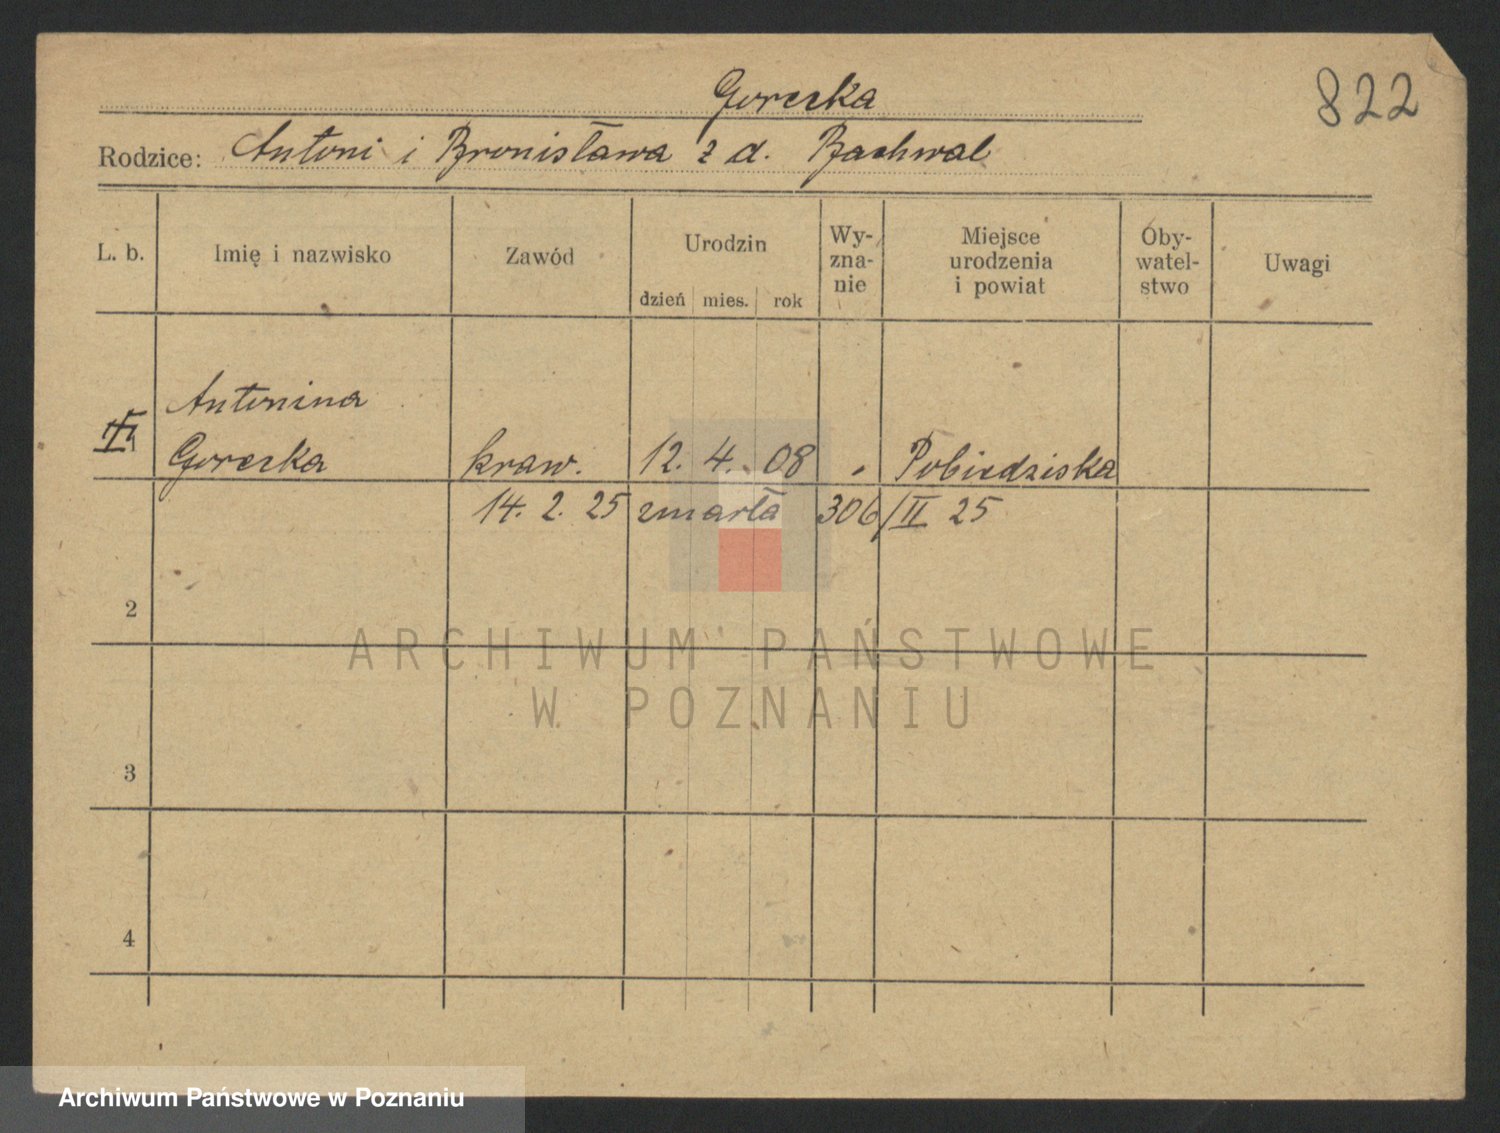 822
Gorecka
Rodzice: Antoni i Bronisława z d. Bachwal
L. b. Imię i nazwisko Zawód Urodzin Wy-znanie Miejsce urodzenia i powiat Oby-watel-stwo Uwagi
dzień mies. rok
Antonina
1 Gorecka kraw. 12. 4. 08 Pobiedziska
14. 2. 25 zmarła 306/II 25
2
ARCHIWUM PAŃSTWOWE
W POZNANIU
3
4
Archiwum Państwowe w Poznaniu